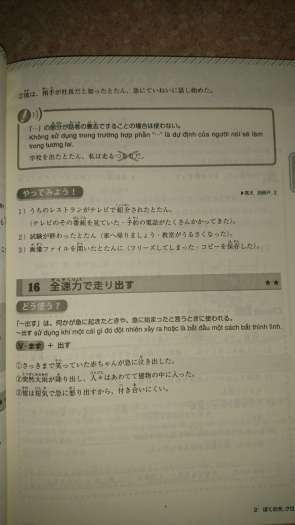 ②彼は、相手が社長だと知ったとたん、急にていねいに話し始めた。
「…」の部分が話者の意志ですることの場合は使わない。
Không sử dụng trong trường hợp phần "…" là dự định của người nói sẽ làm
trong tương lai.
学校を出たとたん、私は走る
やってみよう！
▶答え 別冊P. 2
1）うちのレストランがテレビで紹介されたとたん、
（テレビのその番組を見ていた・予約の電話がたくさんかかってきた）。
2）試験が終わったとたん（家へ帰りましょう・教室がうるさくなった）。
3）画像ファイルを開いたとたんに（フリーズしてしまった・コピーを保存した）。
16 全速力で走り出す ★★
どう使う？
「～出す」は、何かが急に起きたときや、急に始まったと言うときに使われる。
～出す sử dụng khi một cái gì đó đột nhiên xảy ra hoặc là bắt đầu một cách bất thình lình.
V-ます + 出す
①さっきまで笑っていた赤ちゃんが急に泣き出した。
②突然大雨が降り出し、人々はあわてて建物の中に入った。
③彼は短気で急に怒り出すから、付き合いにくい。